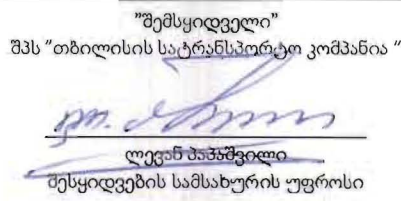 "შემსყიდველი"
შპს "თბილისის სატრანსპორტო კომპანია "
ლევან პაპაშვილი
შესყიდვების სამსახურის უფროსი